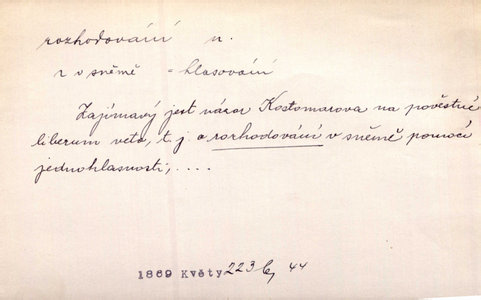 rozhodování n.
r v sněmě = hlasování
Zajímavý jest názor Kostomarova na pověstné
liberum veto, t. j. o rozhodování v sněmě pomocí
jednohlasnosti, ....
1869 Květy 223 b, 44